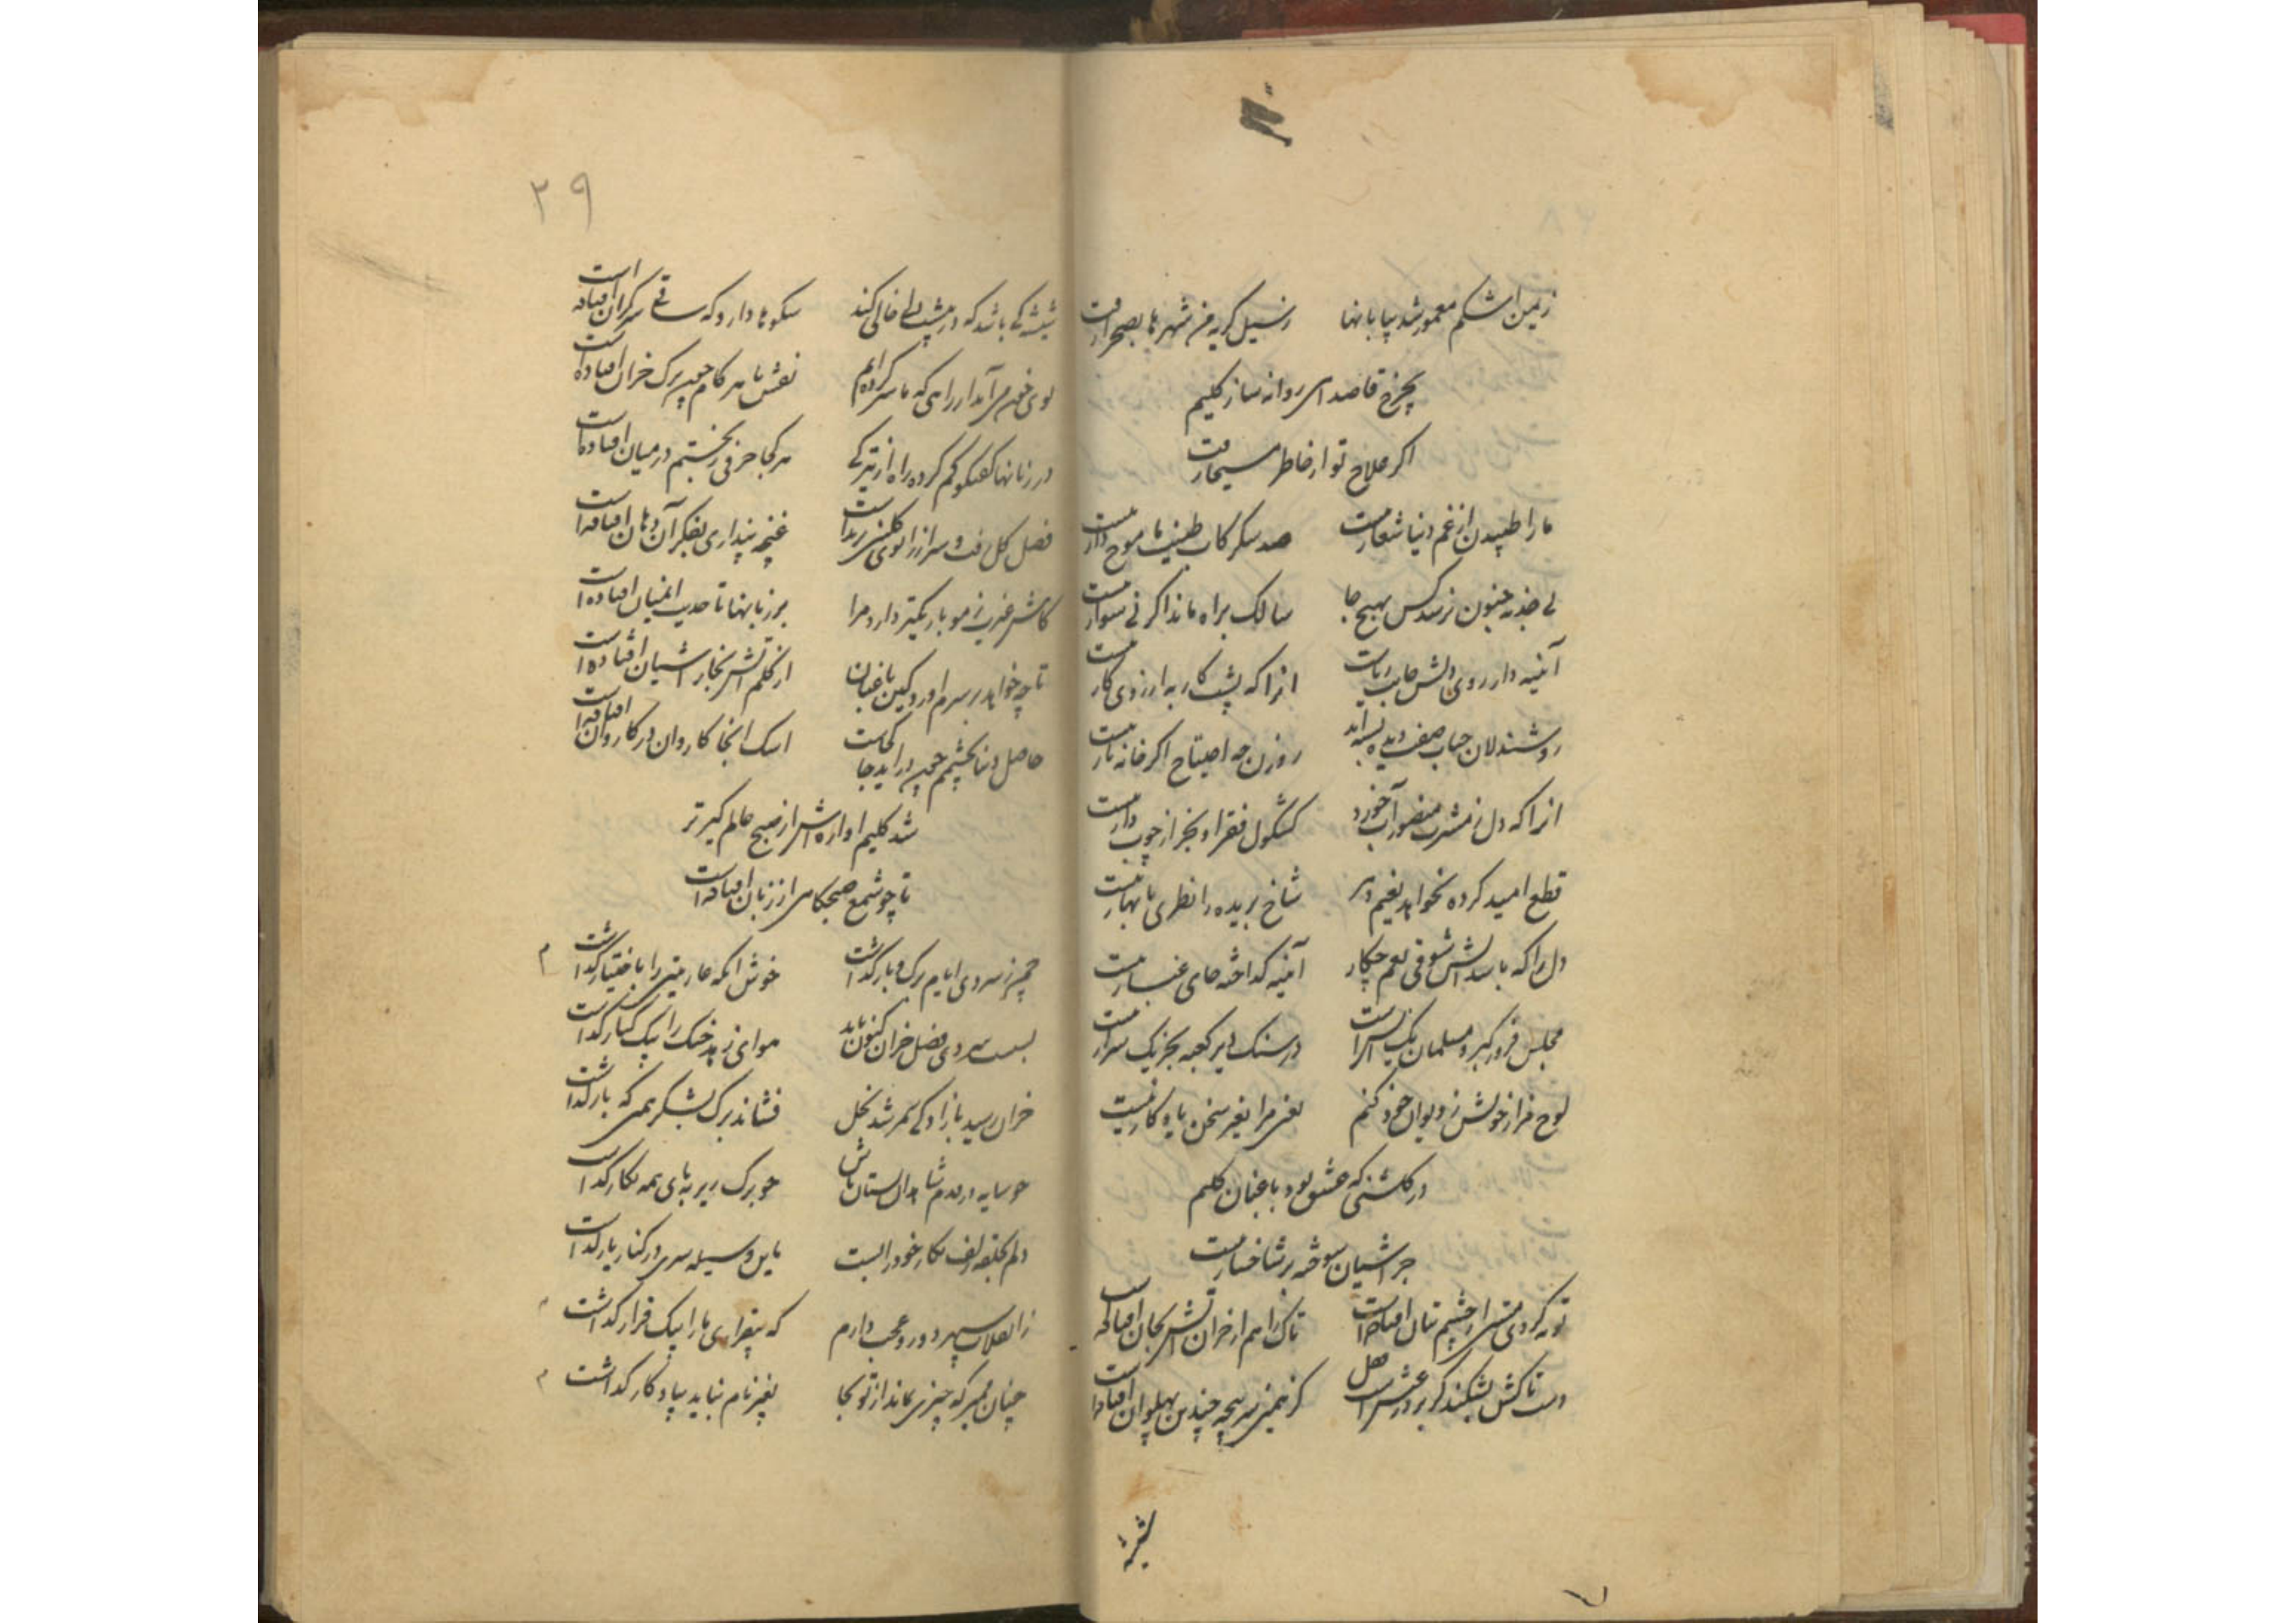 ز یمن اشکم معمور شد بیابانها ز سیل گریه من شهرها بصحرا رفت
بچرخ قاصد آهی روانه ساز کلیم
اگر علاج تو از خاطر مسیحا رفت
ما را طپیدن از غم دنیا شعار نیست صد شکر کاب طینت ما موج دار نیست
بی جذبه جنون نرسد کس بهیچ جا سالک براه ماند اگر نی سوار نیست
آئینه دار روی دلش حاجت انرا که پشت کار به ارزوی کار نیست
روشندلان حباب صفت دیده بسته اند روزن چه احتیاج اگر خانه تار نیست
انرا که دل ز مشرب منصور آب خورد کشکول فقر او بجز از چوب دار نیست
قطع امید کرده نخواهد نعیم دهر شاخ بریده را نظری با بهار نیست
دل را که باشد آتش شوقی بغم چکار آئینه گداخته جای غبار نیست
مجلس فروز گبر و مسلمان یک آتش است در سنگ دیر و کعبه بجز یک شرار نیست
لوح مزار خویش ز دیوان خود کنم یعنی مرا بغیر سخن یادگار نیست
در گلشنی که عشق بود باغبان کلیم
جز آشیان سوخته بر شاخسار نیست
توبه کردی مستی از چشم بتان افتاده است تاک را هم از خزان آتش بجان افتاده است
دست تاکش بشکند گر بر در عقل است کز نمیش پنجه چندین پهلوان افتاده است
شیشه
۲۹
شیشه کی باشد که در پیشت دلی خالی کند شکوها دارد که ساقی سرگران افتاده است
بوی خون می آید از راهی که ما سر کرده ایم نقش پا هر گام چون برگ خزان افتاده است
در زبانها گفتگو گم کرده راه از تیرگی هر کجا حرفی ز بختم در میان افتاده است
فصل گل رفت و سر از زانوی گلشن برنداشت غنچه پنداری بفکر آن دهان افتاده است
کاش غیرت ز مو باریکتر دارد مرا بر زبانها تا حدیث آن میان افتاده است
تا چه خواهد بر سرم آورد کین باغبان از گلم آتش بخار آشیان افتاده است
حاصل دنیا بچشمم چون درآید جا کجاست اشک اینجا کاروان در کاروان افتاده است
شد کلیم آوازه اش از صبح عالم گیرتر
تا چو شمع صبحگاهی از زبان افتاده است
چمن ز سردی ایام برگ و بار گذاشت خوش آنکه عاریتی را باختیار گذاشت
بس است سردی فصل خزان کنون باید هوای زهد خشک را بیک کنار گذاشت
خزان رسید بازادگی ثمر شد نخل فشاند برگ بشکر همین که بار گذاشت
چو سایه در قدم شاهدان بستان باش چو برگ زیر پای همه نگار گذاشت
دلم بحلقه زلف نگار خود را بست باین وسیله سری در کنار یار گذاشت
ز انقلاب سپهر دو رو عجب دارم که بیقراری ما را بیک قرار گذاشت
چنان بمیر که چیزی نماند از تو بجا بغیر نام نباید بیادگار گذاشت